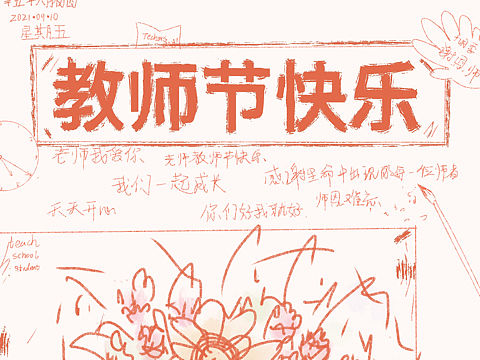 2021.09.10
星期五
Teachers
教师节快乐
谢恩师
老师我爱你
老师教师节快乐
我们一起成长
感谢生命中出现的每一位师者
师恩难忘
天天开心
你们好我就好
teach
school
student